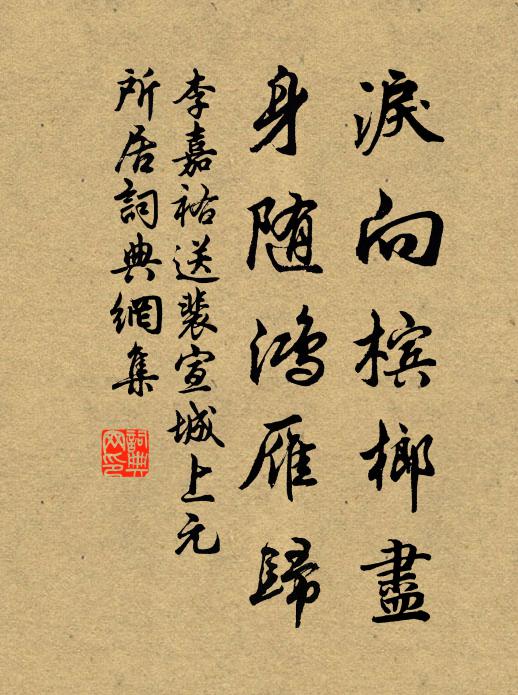 淚向檳榔盡
身随鴻雁歸
李嘉祐送裴宣城上元
所居詞典網集
詞典
网印